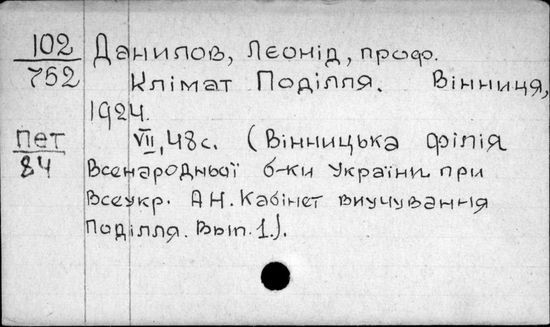 102 Данилов, Леонід, проф.
752 Клімат Поділля. Вінниця,
1924.
Пет VII, 48 с. (Вінницька філія
84 Всенародньої б-ки України при
Всеукр. АН. Кабінет виучування
Поділля. Вып. 1.).